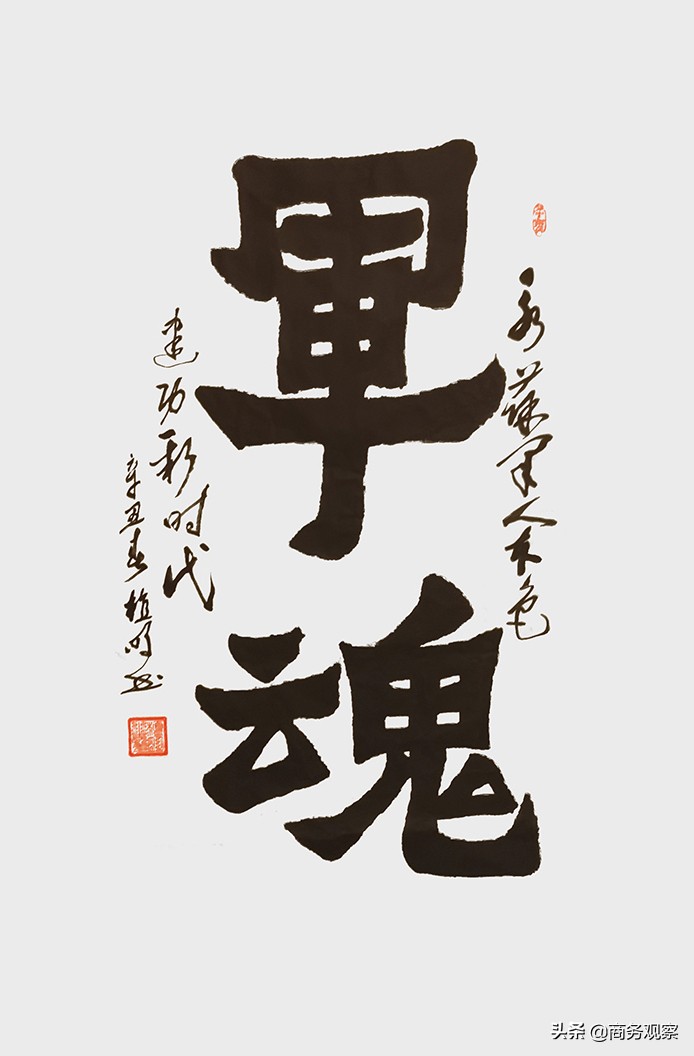 永葆军人本色
軍魂
建功新时代
辛丑春植明书
头条 @商务观察